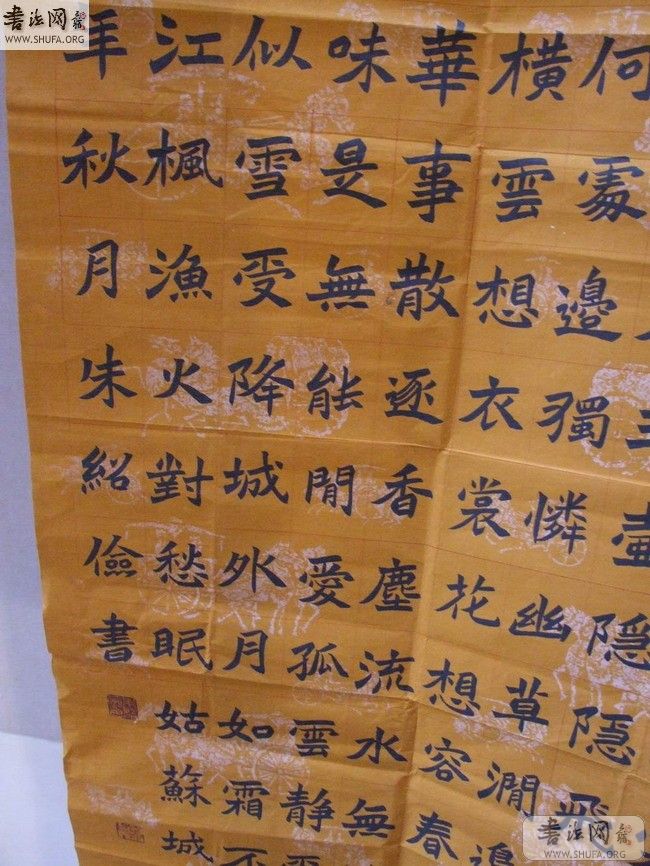 書法网
WWW.SHUFA.ORG
壺隐隐飛
何處邊獨憐幽草澗邊
横雲想衣裳花想容春
華事散逐香塵流水無
味是無能閒愛孤雲靜
似雪受降城外月如霜不
江楓漁火對愁眠姑蘇城
年秋月朱紹儉書
書法网
WWW.SHUFA.ORG